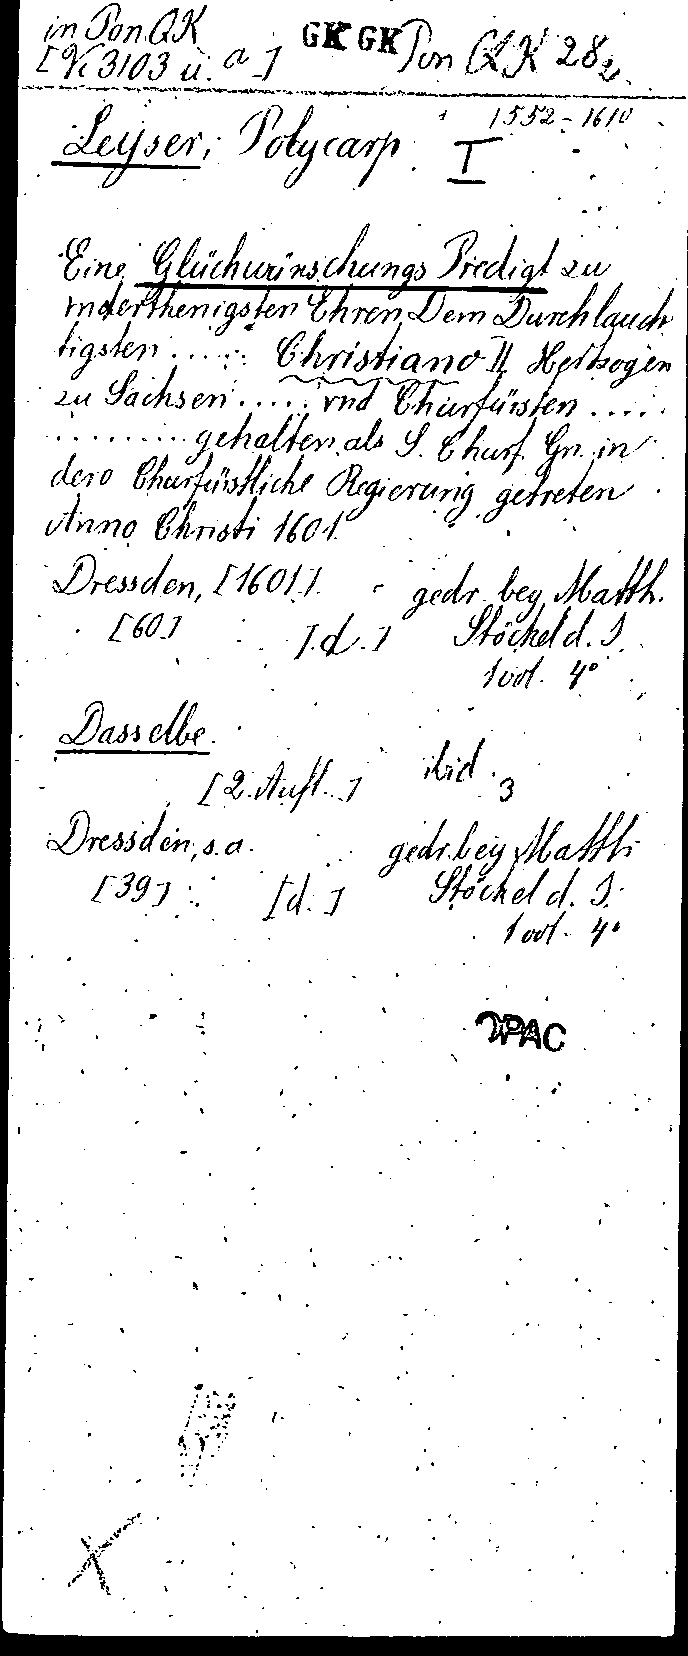 in Pon QK
[Vc 3103 u. a] GK GK Pon QK 282
1552-1610
Leyser, Polycarp I
Eine Glückwünschungs Predigt zu
vnderthenigsten Ehren Dem Durchlauch
tigsten ..... Christiano II Hertzogen
zu Sachsen ..... vnd Churfürsten .....
......... gehalten als S. Churf. Gn. in
dero Churfürstliche Regierung getreten
Anno Christi 1601.
Dressden, [1601]. gedr. bey Matth.
[60] [d.] Stöckel d. J.
1 vol. 4°
Dasselbe.
[2. Aufl.] ibid. 3
Dressden, s. a. gedr. bey Matth.
[39] [d.] Stöckel d. J.
1 vol. 4°
OPAC